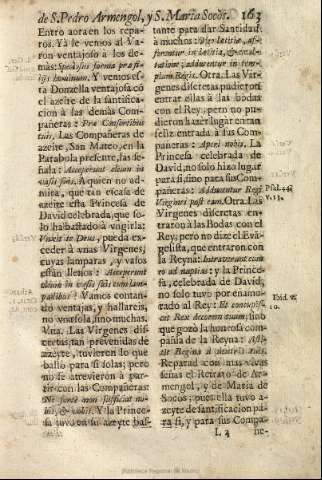 de S. Pedro Armengol, y S. Maria Socòs. 163
Entro aora en los repa-
ros. Yà le vemos al Va-
ron ventajoso à los de-
màs: Speciosus forma præ fi-
lijs hominum. Y vemos es-
ta Donzella ventajosa cõ
el azeite de la santifica-
cion à las demàs Com-
pañeras: Præ Consortibus
tuis. Las Compañeras de
azeite, San Mateo, en la
Parabola presente, las se-
ñala: Acceperunt oleum in
vasis suis. A quien no ad-
mira, que tan escasa de
azeite esta Princesa de
David celebrada, que so-
lo ha bastado à vngirla:
Vnxit te Deus, pueda ex-
ceder à vnas Virgenes,
cuyas lamparas, y vasos
estàn llenos: Acceperunt
oleum in vasis suis cum lam-
padibus? Vamos contan-
do ventajas, y hallareis,
no vna sola, sino muchas.
Vna. Las Virgenes dis-
cretas, tan prevenidas de
azeyte, tuvieron lo que
bastò para sì solas; pero
no se atrevieron à par-
tir con las Compañeras:
Ne fortè non sufficiat no-
bis, & vobis. Y la Prince-
sa tuvo en su azeyte bas-
tante para dar Santidad
à muchos:
Regis. Otra. Las Vir-
genes discretas pudieron
entrar ellas à las bodas
con el Rey; pero no pu-
dieron hazer lugar en tan
feliz entrada à sus Com-
pañeras: Aperi nobis. La
Princesa celebrada de
David, no solo hizo lugar
para sì, sino para sus Com-
pañeras: Adducentur Regi
Virgines post eam. Otra. Las
Virgenes discretas en-
traron à las Bodas con el
Rey, pero no dize el Evã-
gelista, que entraron con
la Reyna: Intraverunt cum
eo ad nuptias: y la Prince-
sa, celebrada de David,
no solo tuvo por enamo-
rado al Rey: Et concupiscet
Rex decorem tuum, sino
que gozò la honrosa com-
pañia de la Reyna: Asti-
tit Regina à dextris tuis.
Reparad con mas vivas
señas el Retrato de Ar-
mengol, y de Maria de
Socòs; pues ella tuvo a-
zeyte de santificacion pa-
ra sì, y para sus Compa-
L 2 ñe-
Psal. 44.
Ibid. v.
Biblioteca Regional de Madrid